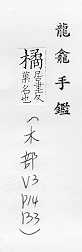 龍龕手鑑
橘居聿反
菓名也
(木部
V3
P14
133)